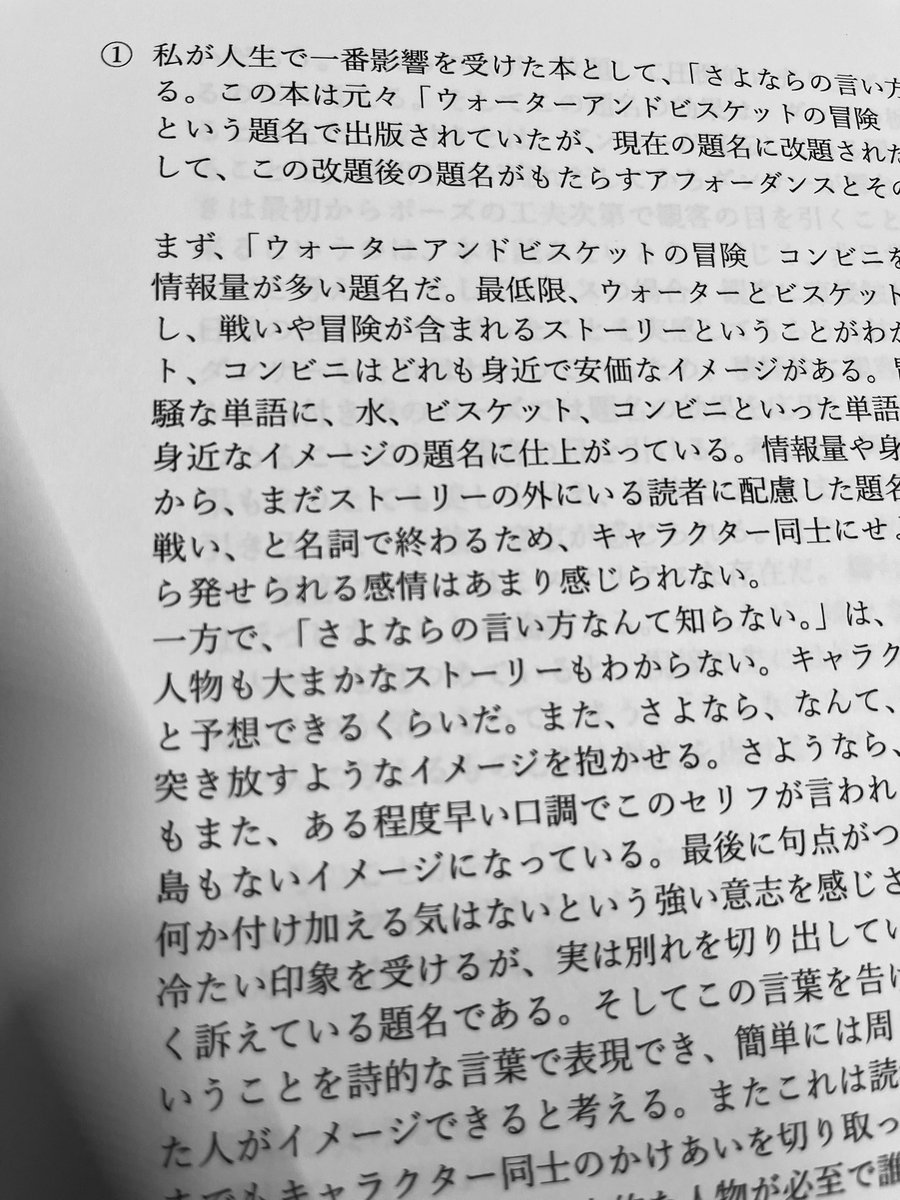 ① 私が人生で一番影響を受けた本として、「さよならの言い方
る。この本は元々「ウォーターアンドビスケットの冒険
という題名で出版されていたが、現在の題名に改題された
して、この改題後の題名がもたらすアフォーダンスとその
まず、「ウォーターアンドビスケットの冒険 コンビニを
情報量が多い題名だ。最低限、ウォーターとビスケット
し、戦いや冒険が含まれるストーリーということがわか
ト、コンビニはどれも身近で安価なイメージがある。
騒な単語に、水、ビスケット、コンビニといった単語
身近なイメージの題名に仕上がっている。情報量や身
から、まだストーリーの外にいる読者に配慮した題名
戦い、と名詞で終わるため、キャラクター同士にせよ
ら発せられる感情はあまり感じられない。
一方で、「さよならの言い方なんて知らない。」は、
人物も大まかなストーリーもわからない。キャラク
と予想できるくらいだ。また、さよなら、なんて、
突き放すようなイメージを抱かせる。さようなら、
もまた、ある程度早い口調でこのセリフが言われ
島もないイメージになっている。最後に句点がつ
何か付け加える気はないという強い意志を感じさ
冷たい印象を受けるが、実は別れを切り出してい
く訴えている題名である。そしてこの言葉を告げ
いうことを詩的な言葉で表現でき、簡単には周
た人がイメージできると考える。またこれは読
までもキャラクター同士のかけあいを切り取っ
的な人物が必至で誰